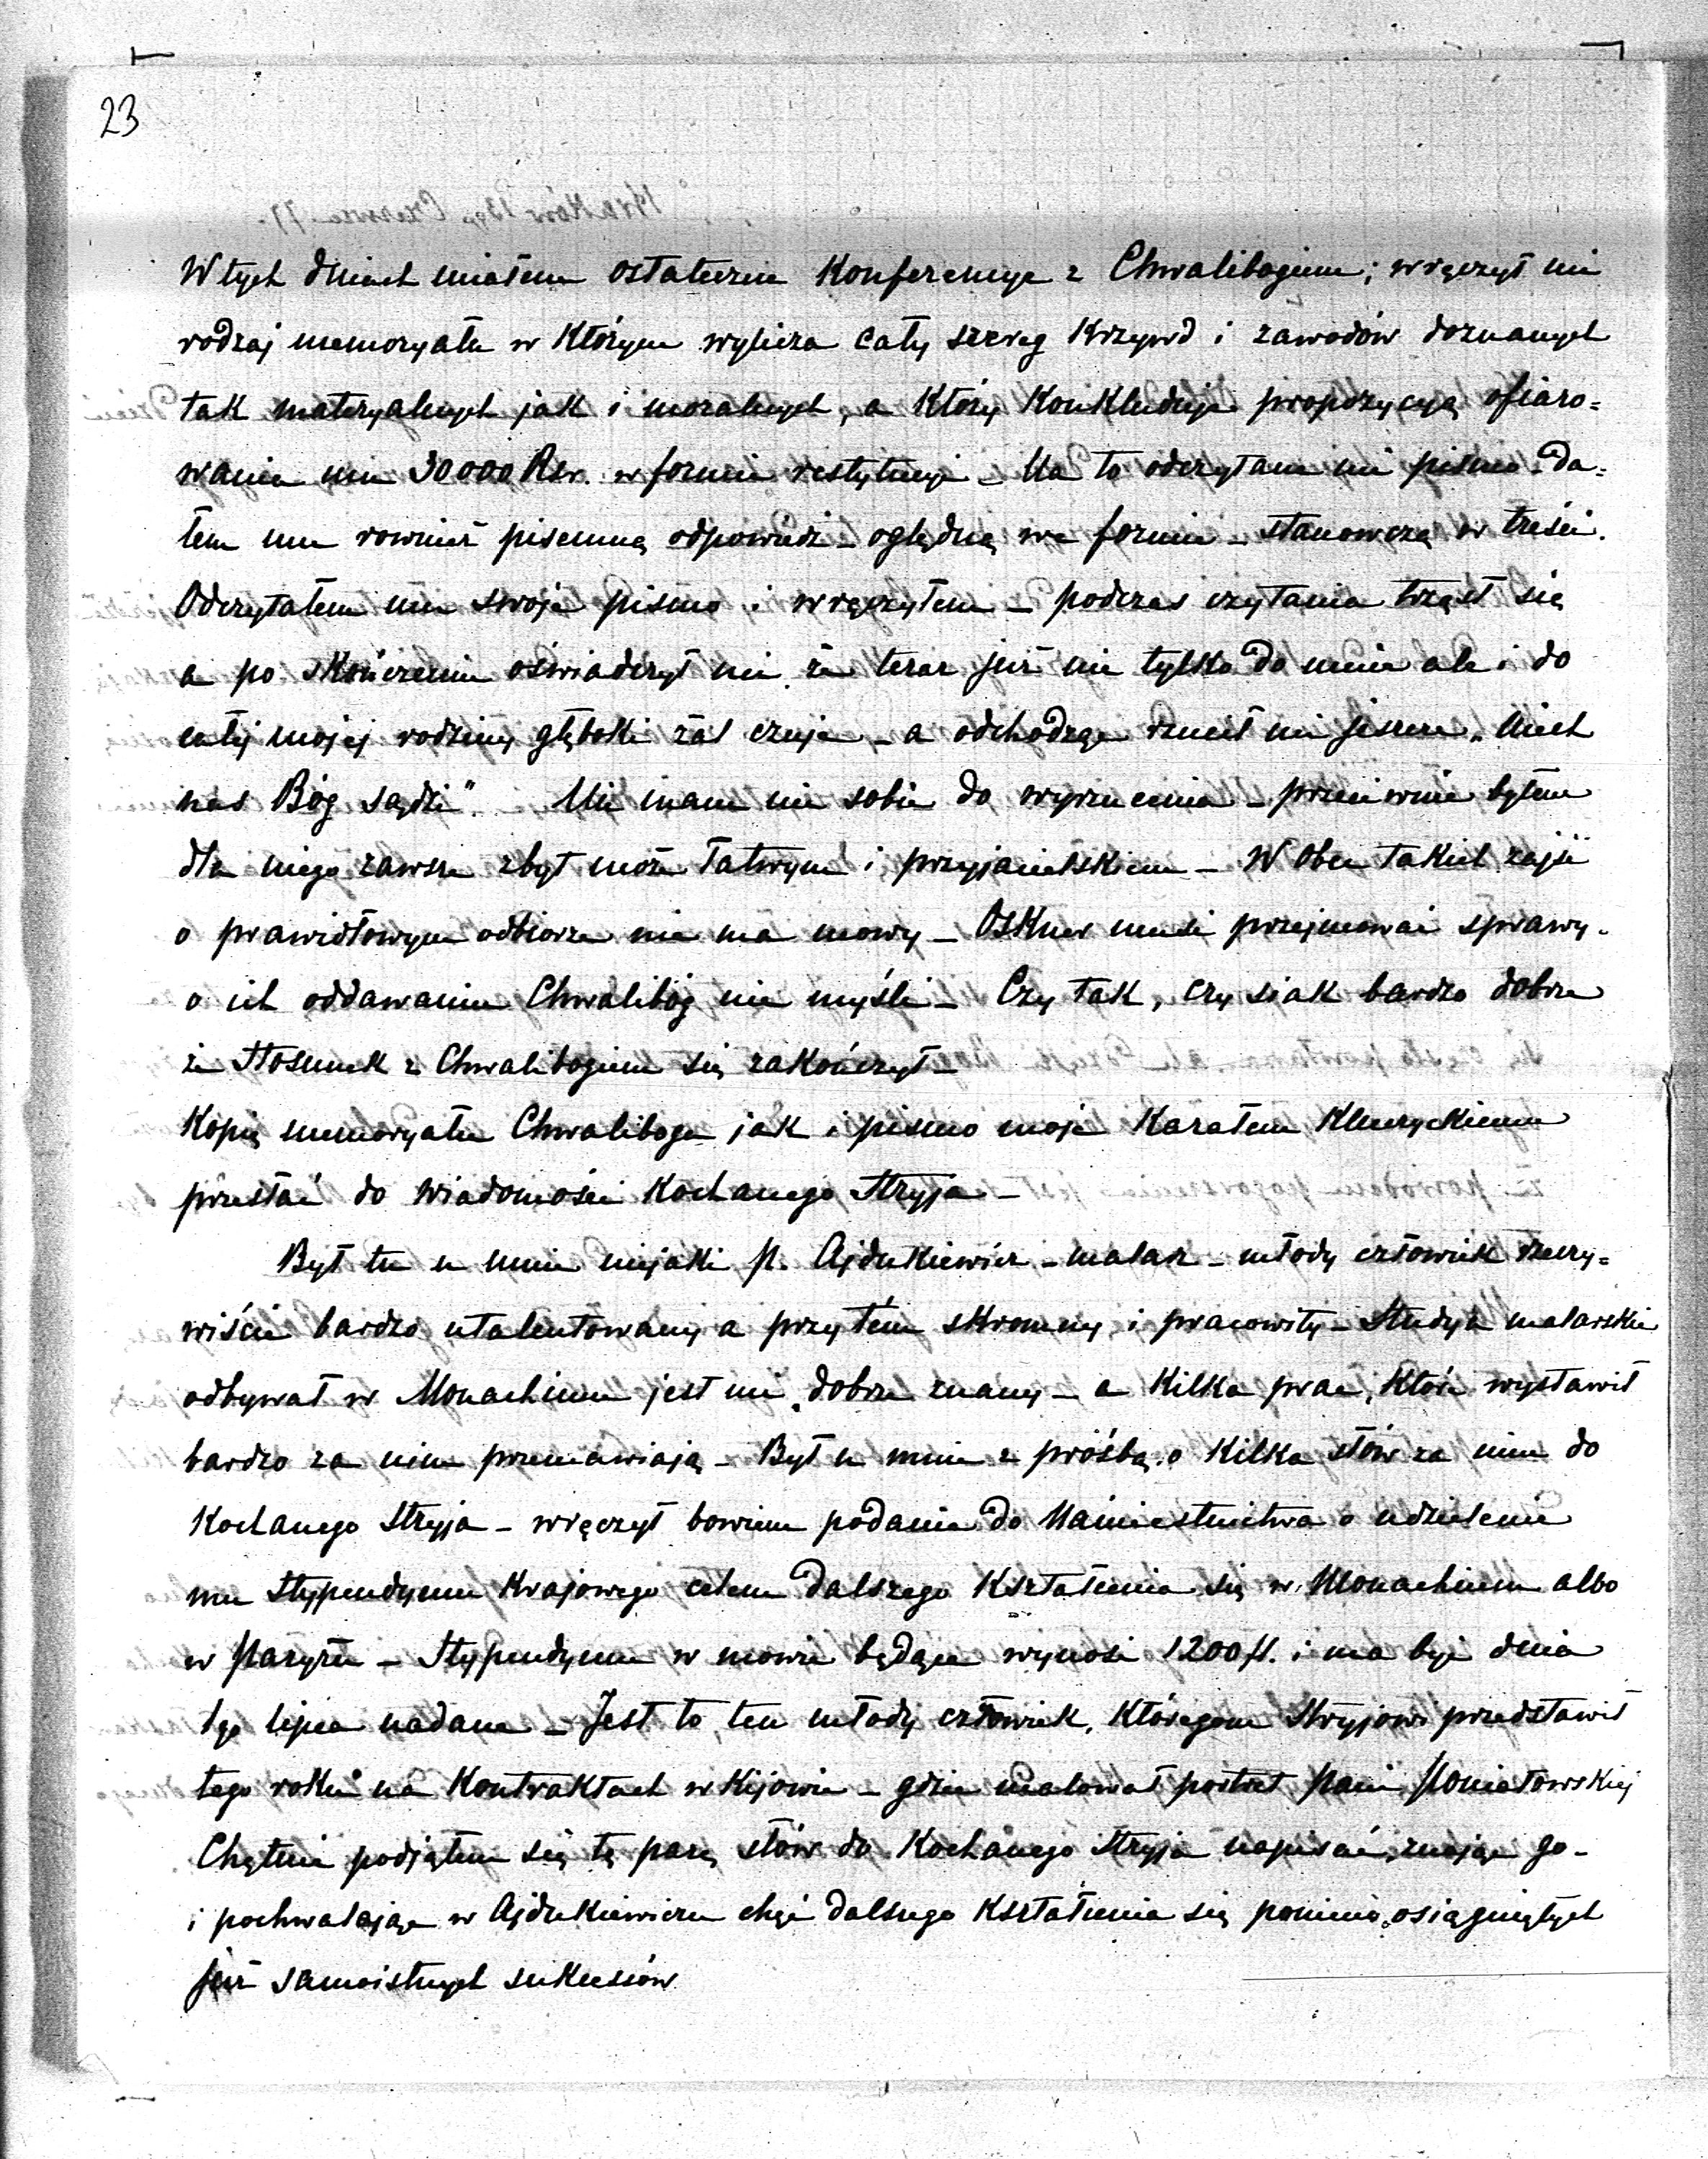 23
W tych dniach miałem ostateczne Konferencye z Chwalibogiem; wręczył mi
rodzaj memoryału w Którym wylicza cały szereg Krzywd i zawodów doznanych
tak materyalnych jak i moralnych, a Który Konkluduje propozycyą ofiaro=
wania mu 30000 Rsr. w formie restytucyi – Na to odczytane mi pismo da=
łem mu rownież pisemną odpowiedź – oględną we formie – stanowczą w treści.
Odczytałem mu swoje pismo i wręczyłem – podczas czytania trząsł się
a po skończeniu oświadczył mi że teraz już nie tylko do mnie ale i do
całej mojej rodziny głęboki żal czuje – a odchodząc rzucił mi jeszcze „Niech
nas Bóg sądzi". Nie mam nic sobie do wyrzucenia – przeciwnie byłem
dla niego zawsze zbyt może łatwym i przyjacielskiem – W obec takich zajść
o prawidłowym odbiorze nie ma mowy – Oskner musi przejmować sprawy.
o ich oddawaniu Chwalibóg nie myśli – Czy tak, czy siak bardzo dobrze
że stosunek z Chwalibogiem się zakończył –
Kopię memoryału Chwaliboga jak i pismo moje Kazałem Kluczyckiemu
przesłać do wiadomości Kochanego Stryja –
Był tu u mnie niejaki p. Ajdukiewicz – malarz – młody człowiek rzeczy=
wiście bardzo utalentowany a przytém skromny i pracowity – Studya malarskie
odbywał w Monachium jest mi dobrze znany – a Kilka prac, Które wystawił
bardzo za nim przemawiają – Był u mnie z prośbą o Kilka słów za nim do
Kochanego Stryja – wręczył bowiem podanie do Namiestnictwa o udzielenie
mu Stypendyum Krajowego celem dalszego Kształcenia się w Monachium albo
w Paryżu – Stypendyum w mowie będące wynosi 1200 fl. i ma być dnia
1go lipca nadane – Jest to ten młody człowiek, Któregom Stryjowi przedstawił
tego roku na Kontraktach w Kijowie – gdzie malował portret Pani Poniatowskiej
Chętnie podjąłem się tę parę słów do Kochanego Stryja napisać, znając go –
i pochwalając w Ajdukiewiczu chęć dalszego Kształcenia się pomimo osiągniętych
już samoistnych sukcesów